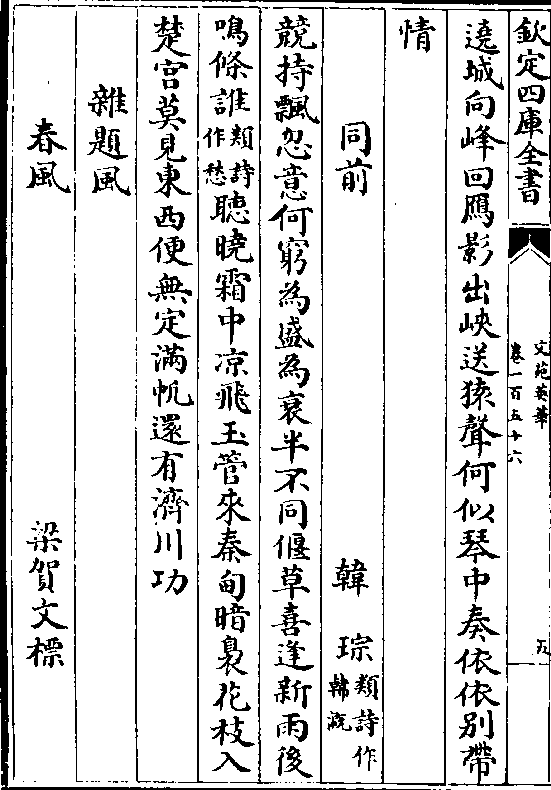 欽定四庫全書
文苑英華
卷一百五十六
五
遶城向峰回鴈影出峽送猿聲何似琴中奏依依別帶
情
同前
韓琮類詩作韓溉
競持飄忽意何窮為盛為衰半不同偃草喜逢新雨後
鳴條誰類詩作愁聽曉霜中凉飛玉管來秦甸暗裊花枝入
楚宮莫見東西便無定滿帆還有濟川功
雜題風
春風
梁賀文標